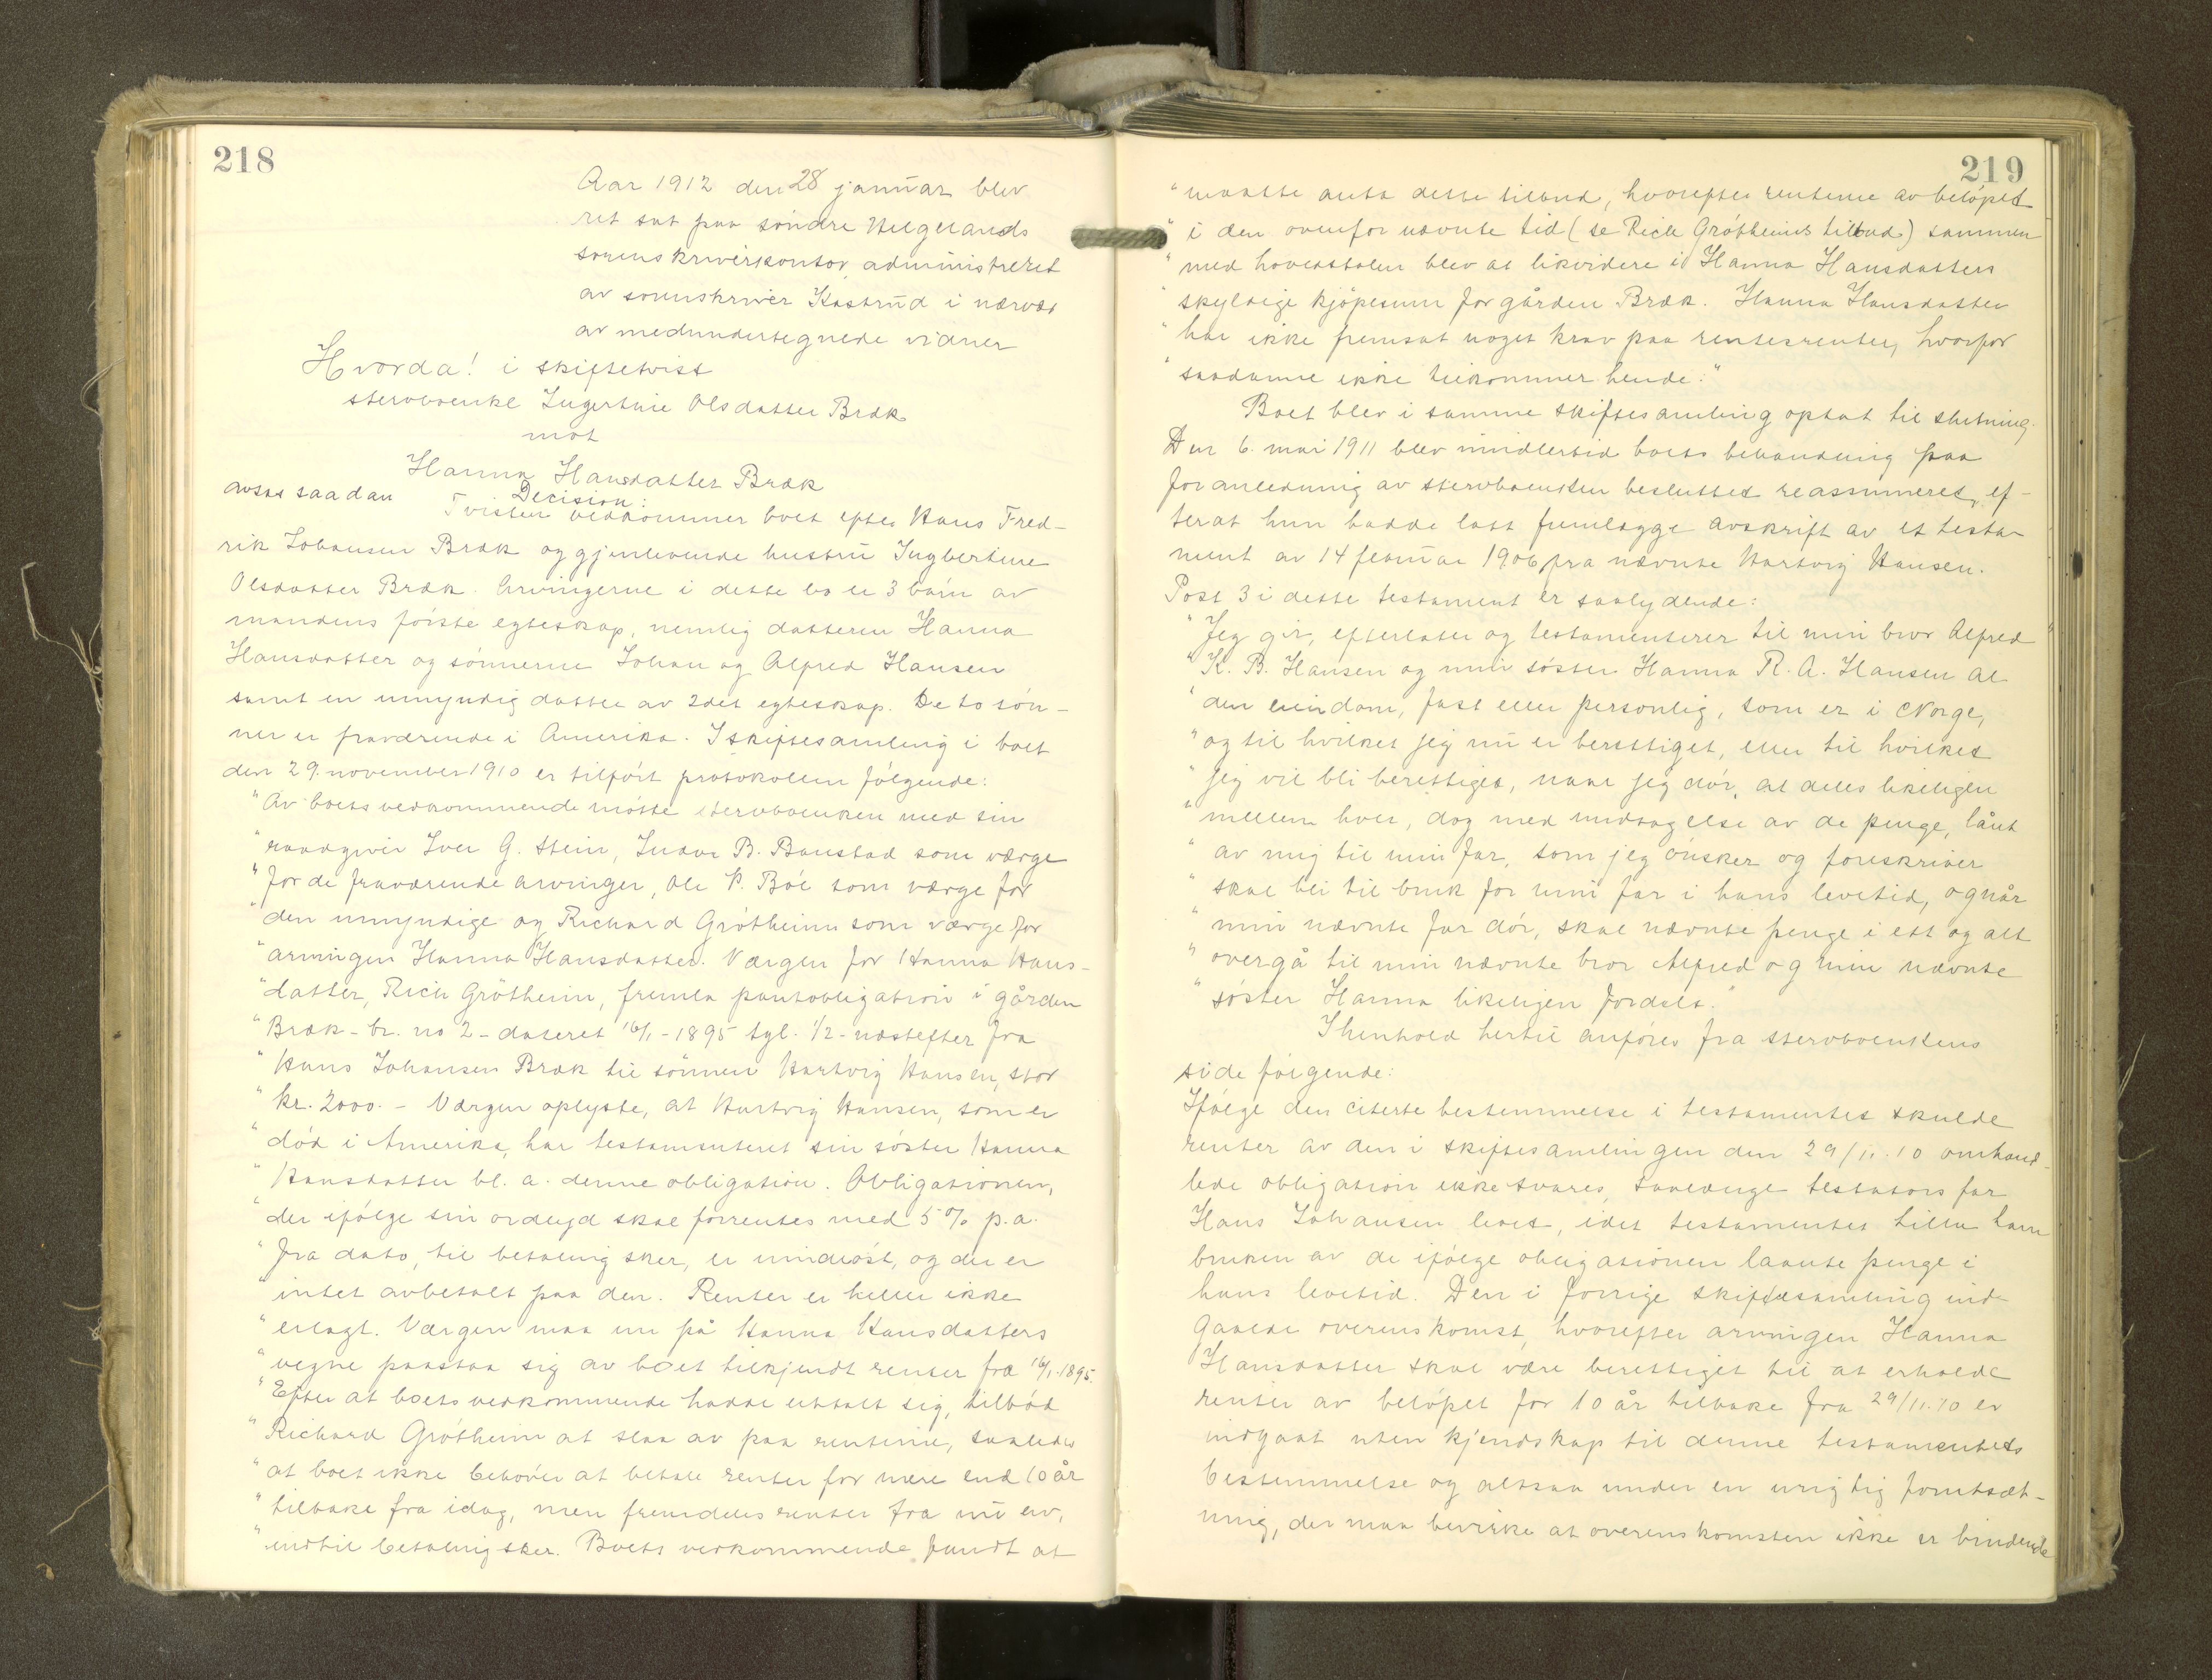 218
Aar 1912 den 28 januar blev
ret sat paa söndre Helgelands
sorenskriverkontor administreret
av sorenskriver Kastrud i nærvær
av medundertegnede vidner
Hvorda! i skiftetvist
stervboenke Ingertine Olsdatter Bræk
mot
Hanna Hansdatter Bræk
avsas saadan Decision:
Tvisten vedkommer boet efter Hans Fred-
rik Johansen Bræk og gjenlevende hustru Ingbertine
Olsdatter Bræk. Arvingerne i dette bo er 3 barn av
mandens förste egteskap, nemlig datteren Hanna
Hansdatter og sönnerne Johan og Alfred Hansen
samt en umyndig datter av 2det egteskap. De to sön-
ner er fraværende i Amerika. I skiftesamling i boet
den 29. november 1910 er tilfört protokollen fölgende:
"Av boets vedkommende mötte stervboenken med sin
"raadgiver Iver G. Stein, B. Baustad som værge
"for de fraværende arvinger, Ole P. Böe som værge for
"den umyndige og Richard Grötheim som værge for
"arvingen Hanna Hansdatter. Værgen for Hanna Hans-
"datter, Rich Grötheim, fremla pantobligation i gården
"Bræk - br. no 2 - dateret 16/1 - 1895 tgl. 1/2 - næstefter fra
"Hans Johansen Bræk til sönnen Hartvig Hansen, stor
"kr. 2000. - Værgen oplyste, at Hartvig Hansen, som er
"död i Amerika, har testamenteret sin söster Hanna
"Hansdatter bl. a. denne obligation. Obligationen,
"der ifölge sin ordlyd skal forrentes med 5% p. a.
"fra dato, til betaling sker, er uindlöst, og der er
"intet avbetalt paa den. Renter er heller ikke
"erlagt. Værgen maa nu på Hanna Hansdatters
"vegne paastaa sig av boet tilkjendt renter fra 16/1 - 1895.
"Efter at boets vedkommende hadde uttalt sig, tilböd
"Richard Grötheim at slaa av paa renterne, saaledes
"at boet ikke behöver at betale renter for mere end 10 år
"tilbake fra idag, men fremdeles renter fra nu av,
"indtil betaling sker. Boets vedkommende fandt at
219
"maatte anta dette tilbud, hvorefter renterne av belöpet
"i den ovenfor nævnte tid (se Rich Grötheims tilbud) sammen
"med hovedstolen blev at likvidere i Hanna Hansdatters
"skyldige kjöpesum for gården Bræk. Hanna Hansdatter
"har ikke fremsat noget krav paa rentesrenter, hvorfor
"saadanne ikke tilkommer hende."
Boet blev i samme skiftesamling optat til slutning.
Den 6. mai 1911 blev imidlertid boets behandling paa
foranledning av stervboenken besluttet reassumeret, ef-
terat hun hadde latt fremlægge avskrift av et testa-
ment av 14 februar 1906 fra nævnte Hartvig Hansen.
Post 3 i dette testament er saalydende:
"Jeg gir, efterlater og testamenterer til min bror Alfred
"K. B. Hansen og min söster Hanna R. A. Hansen al
"den eiendom, fast eller personlig, som er i Norge,
"og til hvilket jeg nu er berettiget, eller til hvilket
"jeg vil bli berettiget, naar jeg dör, at deles likeligen
"mellem hver, dog med undtagelse av de penge, lånt
"av mig til min far, som jeg önsker og foreskriver
"skal bli til bruk for min far i hans levetid, og når
"min nævnte far dör, skal nævnte penge i ett og alt
"overgå til min nævnte bror Alfred og min nævnte
"söster Hanna likeligen fordelt."
I henhold hertil anföres fra stervboenkens
side fölgende:
Ifölge den citerte bestemmelse i testamentet skulde
renter av den i skiftesamlingen den 29/11. 10 omhand-
lede obligation ikke svares, saalænge testators far
Hans Johansen levet, idet testamentet tilla ham
bruken av de ifölge obligationen laante penge i
hans levetid. Den i forrige skiftesamling ind-
gaaede overenskomst, hvorefter arvingen Hanna
Hansdatter skal være berettiget til at erholde
renter av belöpet for 10 år tilbake fra 29/11. 10 er
indgaat uten kjendskap til denne testamentets
bestemmelse og altsaa under en urigtig forutsæt-
ning, der maa bevirke at overenskomsten ikke er bindende